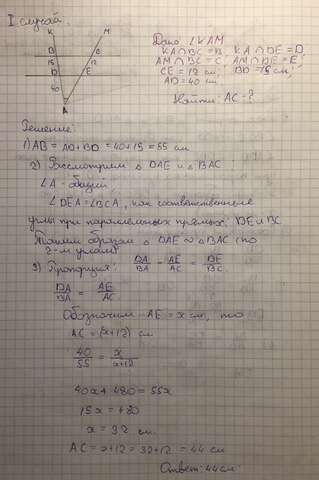 I случай.
K M
B C
15 12
D E
40
A
Дано: ∠KAM
KA∩BC=B, KA∩DE=D,
AM∩BC=C, AM∩DE=E,
CE=12 см, BD=15 см,
AD=40 см.
Найти: AC-?
Решение:
1) AB = AD+BD = 40+15 = 55 см
2) Рассмотрим △DAE и △BAC
∠A - общий
∠DEA=∠BCA, как соответственные
углы при параллельных прямых, DE и BC
Таким образом △DAE ∾ △BAC (по
2-м углам)
3) Пропорция: DA/BA = AE/AC = DE/BC
DA/BA = AE/AC
Обозначим AE = x см, то
AC = (x+12) см
40/55 = x/x+12
40x + 480 = 55x
15x = 480
x = 32 см.
AC = x+12 = 32+12 = 44 см
Ответ: 44 см.